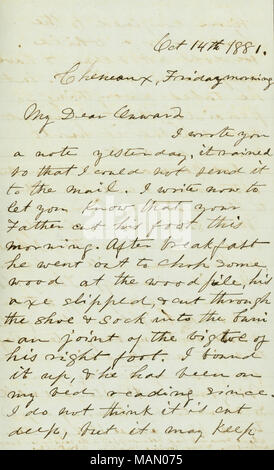 Oct 14th 1881.
Cheneaux, Friday morning
My Dear Onward
I wrote you
a note yesterday, it rained
so that I could not send it
to the mail. I write now to
let you know that your
Father cut his foot this
morning. After breakfast
he went out to chop some
wood at the woodpile, his
axe slipped, & cut through
the shoe & sock into the
an joint of the big toe of
his right foot. I bound
it up, & he has been on
my bed reading since.
I do not think it is cut
deep, but it may keep
alamy
Image ID: MAN075
www.alamy.com